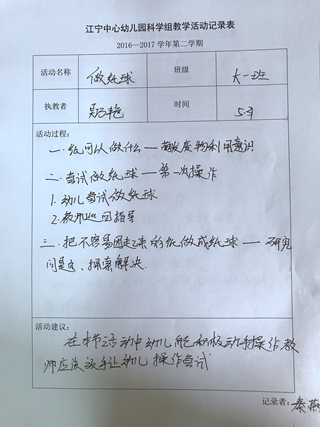 江宁中心幼儿园科学组教学活动记录表
2016—2017学年第二学期
活动名称 做纸球 班级 大一班
执教者 艳 时间 5.9
活动过程:
一.纸可以做什么——萌发废物利用意识
二.尝试做纸球——第一次操作
1.幼儿尝试做纸球
2.教师巡回指导
三.把不容易团起来的纸做成纸球——研究
问题、探索解决.
活动建议:
在本节活动中幼儿能积极动手操作教
师应该放手让幼儿操作尝试
记录者: 秦燕